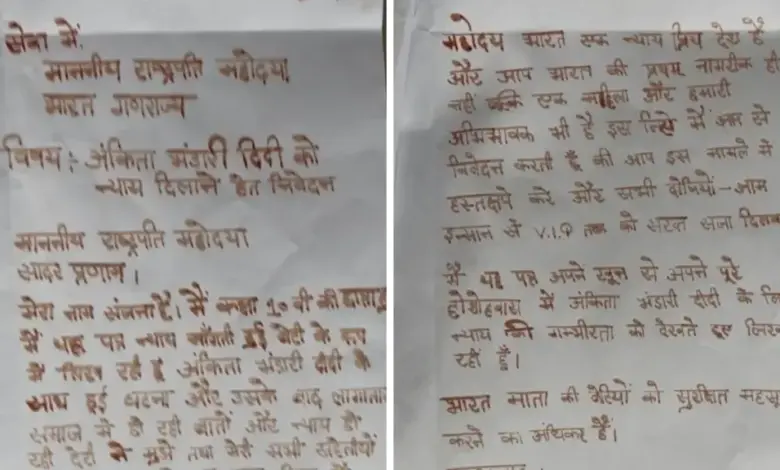 सेवा में,
माननीय राष्ट्रपति महोदया
भारत गणराज्य
विषय: अंकिता भंडारी दिदी को
न्याय दिलाने हेतु निवेदन
माननीय राष्ट्रपति महोदया
सादर प्रणाम।
मेरा नाम संजना है। मैं कक्षा 10 वी की छात्रा हूँ
मैं यह पत्र न्याय माँगती हुई बेटी के रूप
में लिख रही हूँ अंकिता भंडारी दीदी के
साथ हुई घटना और उसके बाद लगातार
समाज में हो रही बातों और न्याय हो
रही देरी ने मुझे तथा मेरी सभी सहेलीयों
महोदय भारत एक न्याय प्रिय देश है
और आप भारत की प्रथम नागरीक ही
नहीं बल्कि एक महिला और हमारी
अभिभावक भी है इस लिये मैं आप से
निवेदन करती हूँ की आप इस मामले में
हस्तक्षपे करे और सभी दोषियों-आम
इन्सान से V.I.P तक को सख्त सजा
मैं यह पत्र अपने खून से अपने पूरे
होशोहवास में अंकिता भंडारी दीदी के
न्याय की गम्भीरता को देखते हुए लिख
रही हूँ।
भारत माता की बेटियों को सुरक्षित
करने का अधिकार है।